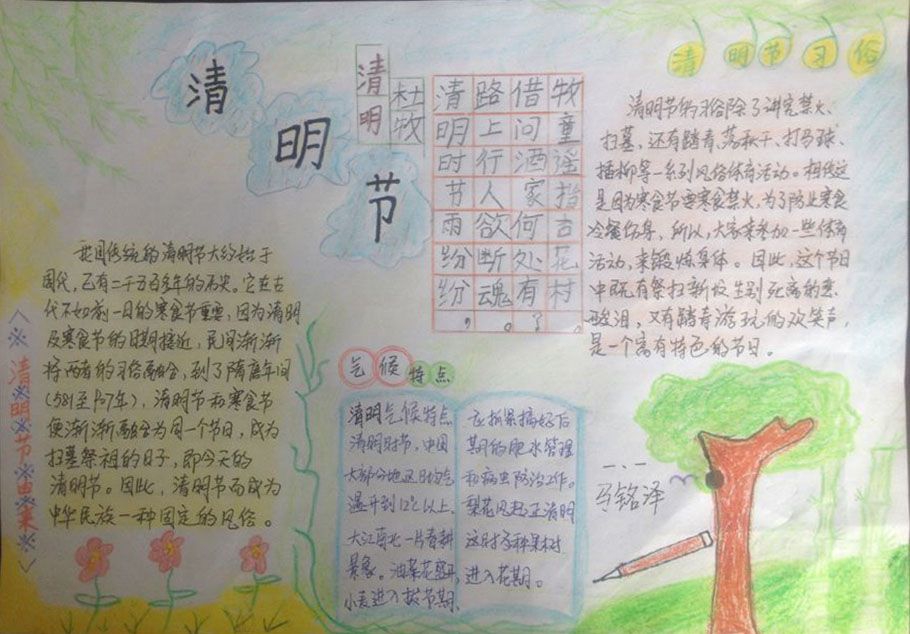 清明节
清明
杜牧
清明时节雨纷纷，
路上行人欲断魂。
借问酒家何处有？
牧童谣指杏花村。
清明节习俗
清明节的习俗除了讲究禁火、
扫墓，还有踏青、荡秋千、打马球、
插柳等一系列风俗体育活动。相传这
是因为寒食节要寒食禁火，为了防止寒食
冷餐伤身，所以，大家来参加一些体育
活动，来锻炼身体。因此，这个节日
中既有祭扫新坟生别死离的悲
酸泪，又有踏青游玩的欢笑声，
是一个富有特色的节日。
清明节由来
我国传统的清明节大约始于
周代，已有二千五百多年的历史。它在古
代不如前一日的寒食节重要，因为清明
及寒食节的日期接近，民间渐渐
将两者的习俗融合，到了隋唐年间
(581至907年)，清明节和寒食节
便渐渐融合为同一个节日，成为
扫墓祭祖的日子，即今天的
清明节。因此，清明节而成为
中华民族一种固定的风俗。
气候特点
清明气候特点
清明时节，中国
大部分地区日均气
温升到12℃以上，
大江南北一片春耕
景象。油菜花盛开，
小麦进入拔节期，
应抓紧搞好后
期的肥水管理
和病虫防治工作。
梨花风起正清明
这时多种果树
进入花期。
一、一
马铭泽